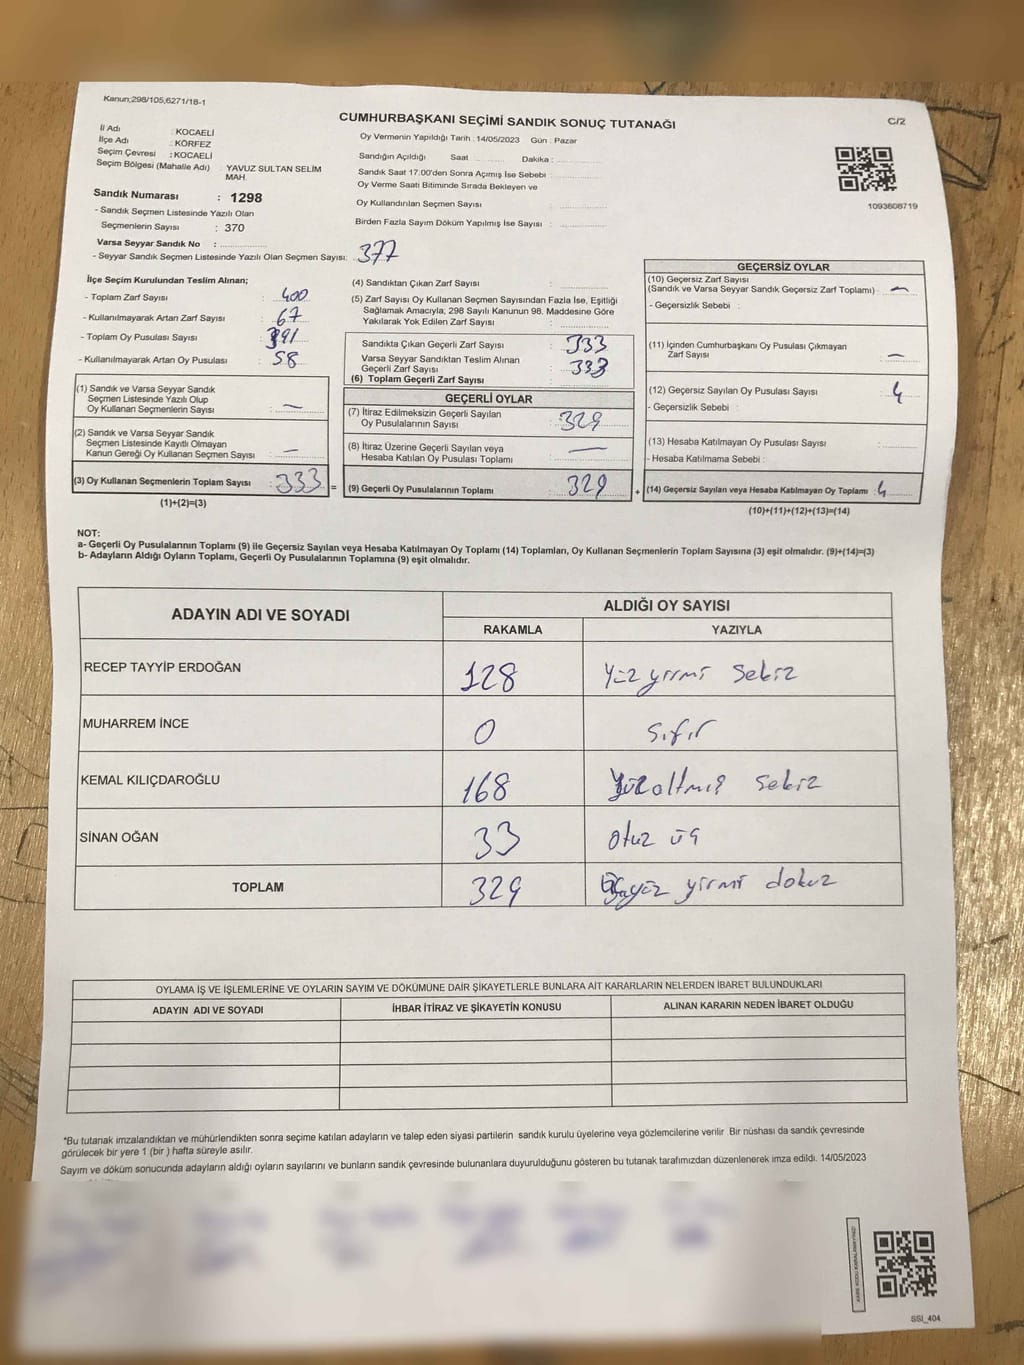 Kanun;298/105,6271/18-1
CUMHURBAŞKANI SEÇİMİ SANDIK SONUÇ TUTANAĞI
C/2
İl Adı : KOCAELİ
İlçe Adı : KÖRFEZ
Seçim Çevresi : KOCAELİ
Seçim Bölgesi (Mahalle Adı) : YAVUZ SULTAN SELİM
MAH.
Sandık Numarası : 1298
- Sandık Seçmen Listesinde Yazılı Olan
Seçmenlerin Sayısı : 370
Varsa Seyyar Sandık No : ..............
- Seyyar Sandık Seçmen Listesinde Yazılı Olan Seçmen Sayısı: 377
Oy Vermenin Yapıldığı Tarih : 14/05/2023 Gün : Pazar
Sandığın Açıldığı Saat .......... Dakika : ..............
Sandık Saat 17:00'den Sonra Açılmış İse Sebebi : ..............
Oy Verme Saati Bitiminde Sırada Bekleyen ve
Oy Kullandırılan Seçmen Sayısı : ..............
Birden Fazla Sayım Döküm Yapılmış İse Sayısı : ..............
1093608719
İlçe Seçim Kurulundan Teslim Alınan;
- Toplam Zarf Sayısı : 400
- Kullanılmayarak Artan Zarf Sayısı : 67
- Toplam Oy Pusulası Sayısı : 391
- Kullanılmayarak Artan Oy Pusulası : 58
(1) Sandık ve Varsa Seyyar Sandık
Seçmen Listesinde Yazılı Olup
Oy Kullanan Seçmenlerin Sayısı : —
(2) Sandık ve Varsa Seyyar Sandık
Seçmen Listesinde Kayıtlı Olmayan
Kanun Gereği Oy Kullanan Seçmen Sayısı : —
(3) Oy Kullanan Seçmenlerin Toplam Sayısı : 333 =
(1)+(2)=(3)
(4) Sandıktan Çıkan Zarf Sayısı : ..............
(5) Zarf Sayısı Oy Kullanan Seçmen Sayısından Fazla İse, Eşitliği
Sağlamak Amacıyla; 298 Sayılı Kanunun 98. Maddesine Göre
Yakılarak Yok Edilen Zarf Sayısı : ..............
Sandıkta Çıkan Geçerli Zarf Sayısı : 333
Varsa Seyyar Sandıktan Teslim Alınan
Geçerli Zarf Sayısı : 333
(6) Toplam Geçerli Zarf Sayısı : ..............
GEÇERLİ OYLAR
(7) İtiraz Edilmeksizin Geçerli Sayılan
Oy Pusulalarının Sayısı : 329
(8) İtiraz Üzerine Geçerli Sayılan veya
Hesaba Katılan Oy Pusulası Toplamı : —
(9) Geçerli Oy Pusulalarının Toplamı : 329 +
GEÇERSİZ OYLAR
(10) Geçersiz Zarf Sayısı
(Sandık ve Varsa Seyyar Sandık Geçersiz Zarf Toplamı) : —
- Geçersizlik Sebebi :
(11) İçinden Cumhurbaşkanı Oy Pusulası Çıkmayan
Zarf Sayısı : —
(12) Geçersiz Sayılan Oy Pusulası Sayısı : 4
- Geçersizlik Sebebi :
(13) Hesaba Katılmayan Oy Pusulası Sayısı : ..............
- Hesaba Katılmama Sebebi :
(14) Geçersiz Sayılan veya Hesaba Katılmayan Oy Toplamı : 4
(10)+(11)+(12)+(13)=(14)
NOT:
a- Geçerli Oy Pusulalarının Toplamı (9) ile Geçersiz Sayılan veya Hesaba Katılmayan Oy Toplamı (14) Toplamları, Oy Kullanan Seçmenlerin Toplam Sayısına (3) eşit olmalıdır. (9)+(14)=(3)
b- Adayların Aldığı Oyların Toplamı, Geçerli Oy Pusulalarının Toplamına (9) eşit olmalıdır.
ADAYIN ADI VE SOYADI ALDIĞI OY SAYISI
RAKAMLA YAZIYLA
RECEP TAYYİP ERDOĞAN 128 Yüz yirmi sekiz
MUHARREM İNCE 0 Sıfır
KEMAL KILIÇDAROĞLU 168 Yüz altmış sekiz
SİNAN OĞAN 33 otuz üç
TOPLAM 329 üçyüz yirmi dokuz
OYLAMA İŞ VE İŞLEMLERİNE VE OYLARIN SAYIM VE DÖKÜMÜNE DAİR ŞİKAYETLERLE BUNLARA AİT KARARLARIN NELERDEN İBARET BULUNDUKLARI
ADAYIN ADI VE SOYADI İHBAR İTİRAZ VE ŞİKAYETİN KONUSU ALINAN KARARIN NEDEN İBARET OLDUĞU
*Bu tutanak imzalandıktan ve mühürlendikten sonra seçime katılan adayların ve talep eden siyasi partilerin sandık kurulu üyelerine veya gözlemcilerine verilir Bir nüshası da sandık çevresinde
görülecek bir yere 1 (bir ) hafta süreyle asılır.
Sayım ve döküm sonucunda adayların aldığı oyların sayılarını ve bunların sandık çevresinde bulunanlara duyurulduğunu gösteren bu tutanak tarafımızdan düzenlenerek imza edildi. 14/05/2023
SSI_404